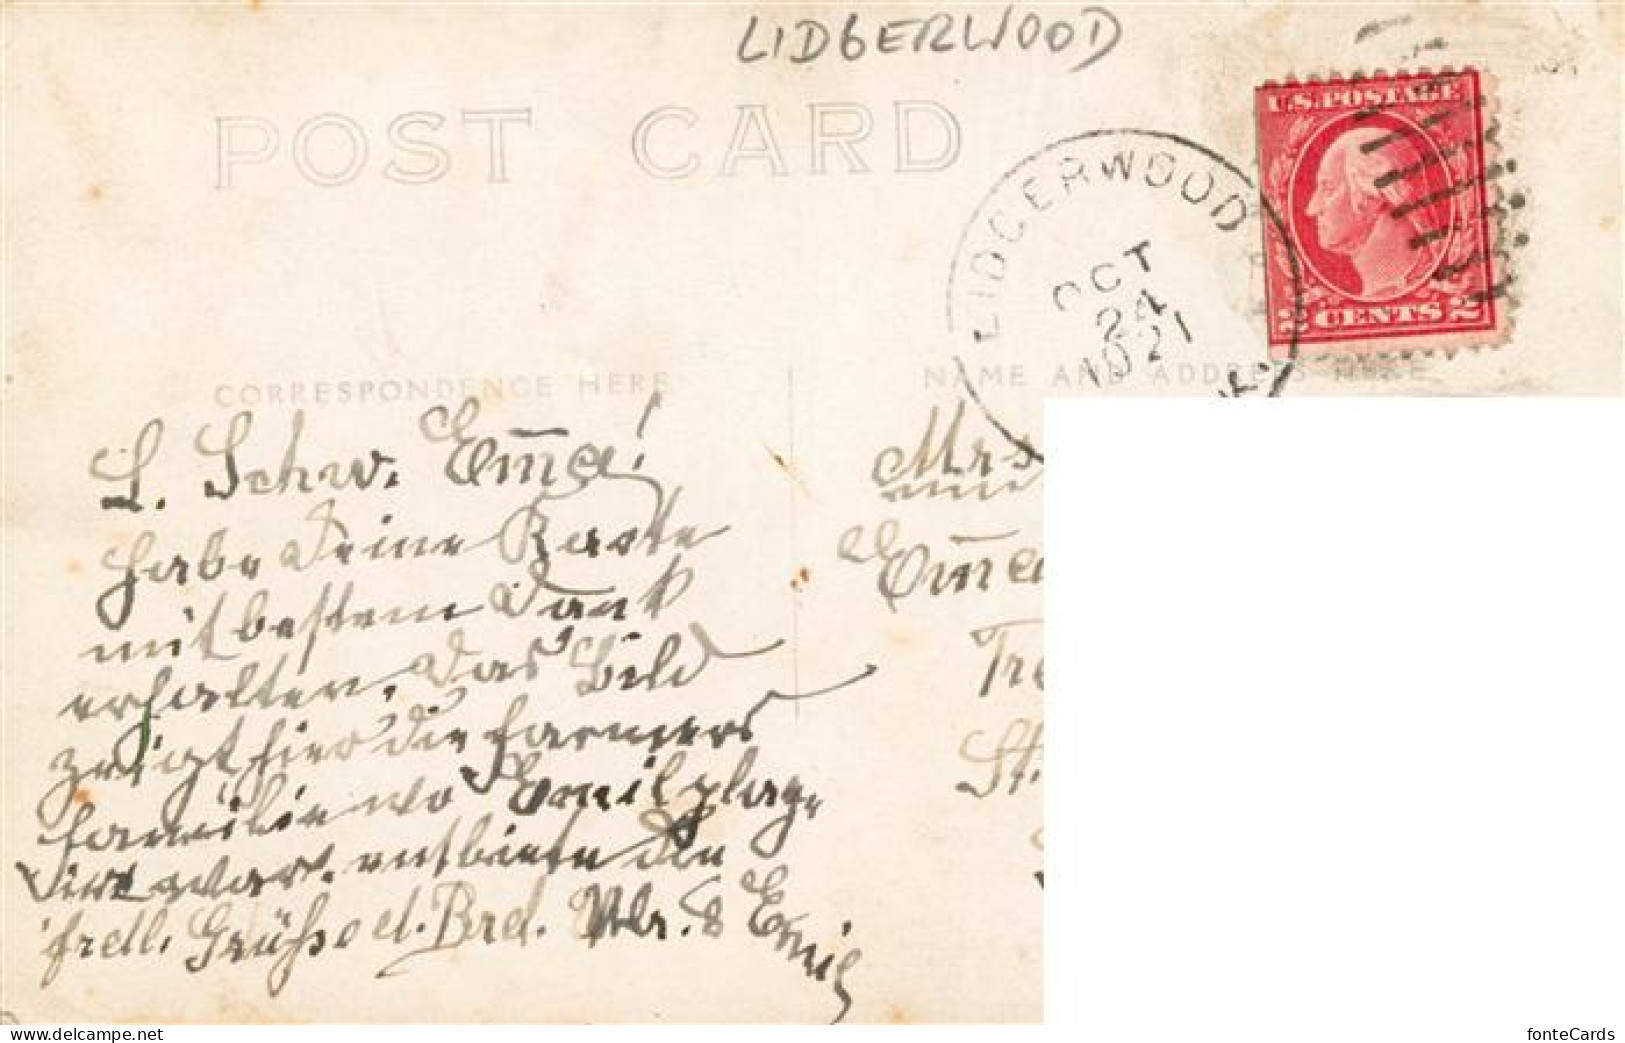 LIDGERWOOD
POST CARD
U.S. POSTAGE
2 CENTS 2
LIDGERWOOD
OCT
24
1921
CORRESPONDENCE HERE
NAME AND ADDRESS HERE
L. Schw. Em̄a!
habe Deine Karte
mit bestem Dank
erhalten. Das Bild
zeigt hier die Farmers
familie wo Emil
war. entbiete Dir
frdl. Grüße d. Brd. & Emil
Mrs
Em̄a
Tr
St.
fonteCards
www.delcampe.net